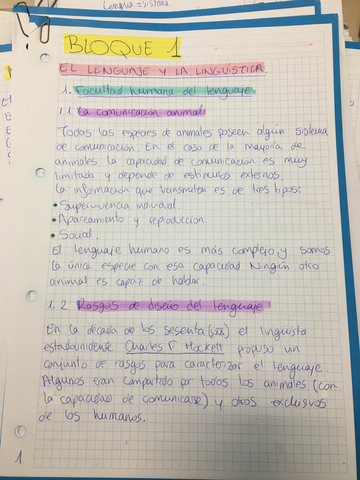 Lengua = sistema
BLOQUE 1
EL LENGUAJE Y LA LINGÜÍSTICA
1. Facultad humana del lenguaje
1.1. La comunicación animal
Todas las especies de animales poseen algún sistema
de comunicación. En el caso de la mayoría de
animales la capacidad de comunicación es muy
limitada y depende de estímulos externos.
La información que transmiten es de tres tipos:
• Supervivencia individual
• Apareamiento y reproducción
• Social
El lenguaje humano es más complejo, y somos
la única especie con esa capacidad. Ningún otro
animal es capaz de hablar.
1.2 Rasgos de diseño del lenguaje
En la década de los sesenta el linguista
estadounidense Charles F Hockett propuso un
conjunto de rasgos para caracterizar el lenguaje.
Algunos eran compartido por todos los animales (con
la capacidad de comunicarse) y otros exclusivos
de los humanos.
1